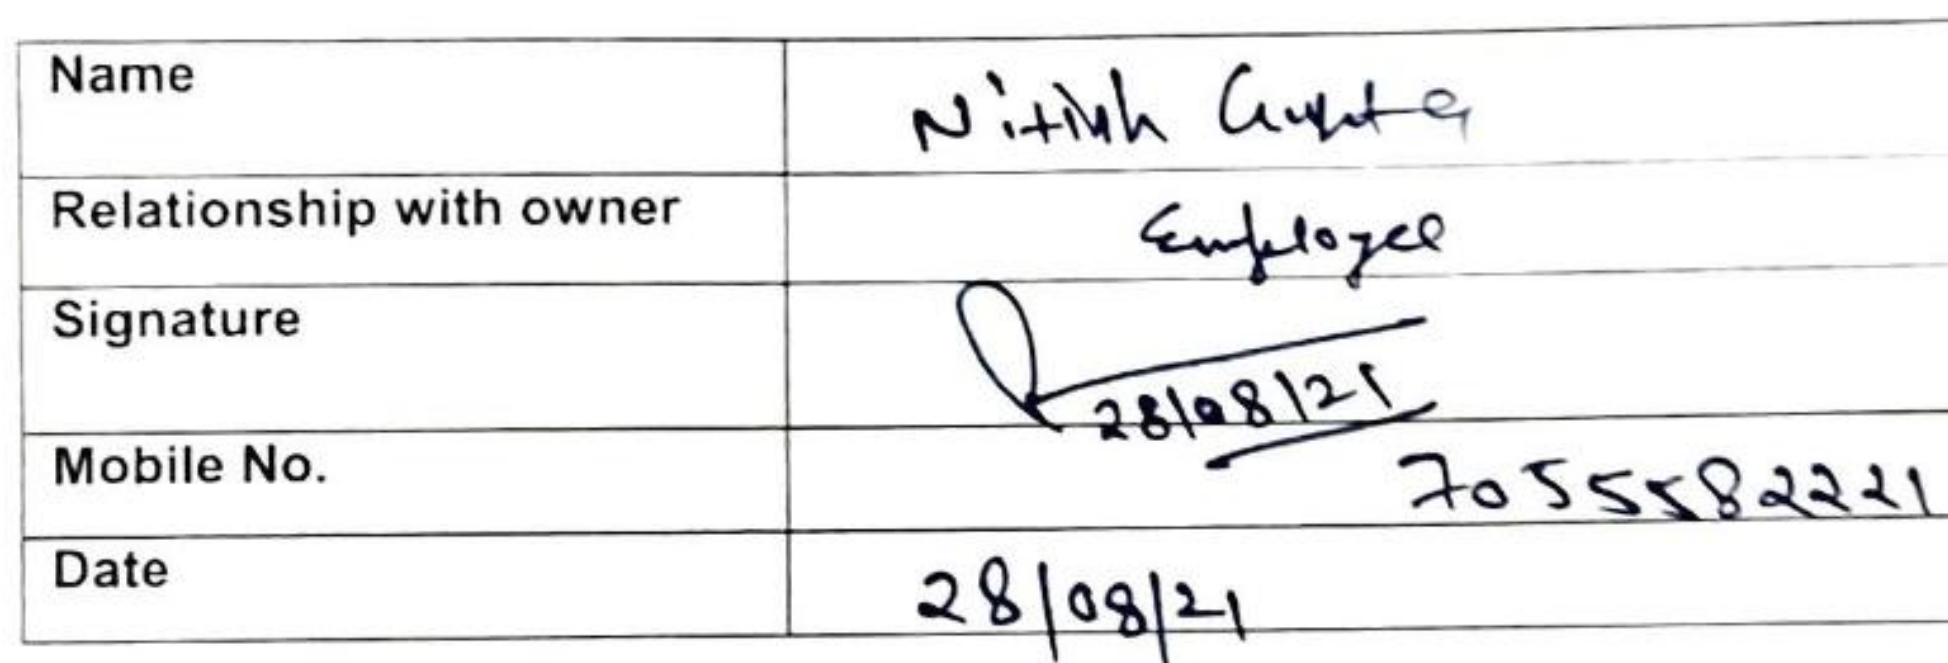 Name Nitish Gupta
Relationship with owner Employee
Signature 28/08/21
Mobile No. 7055582221
Date 28/08/21